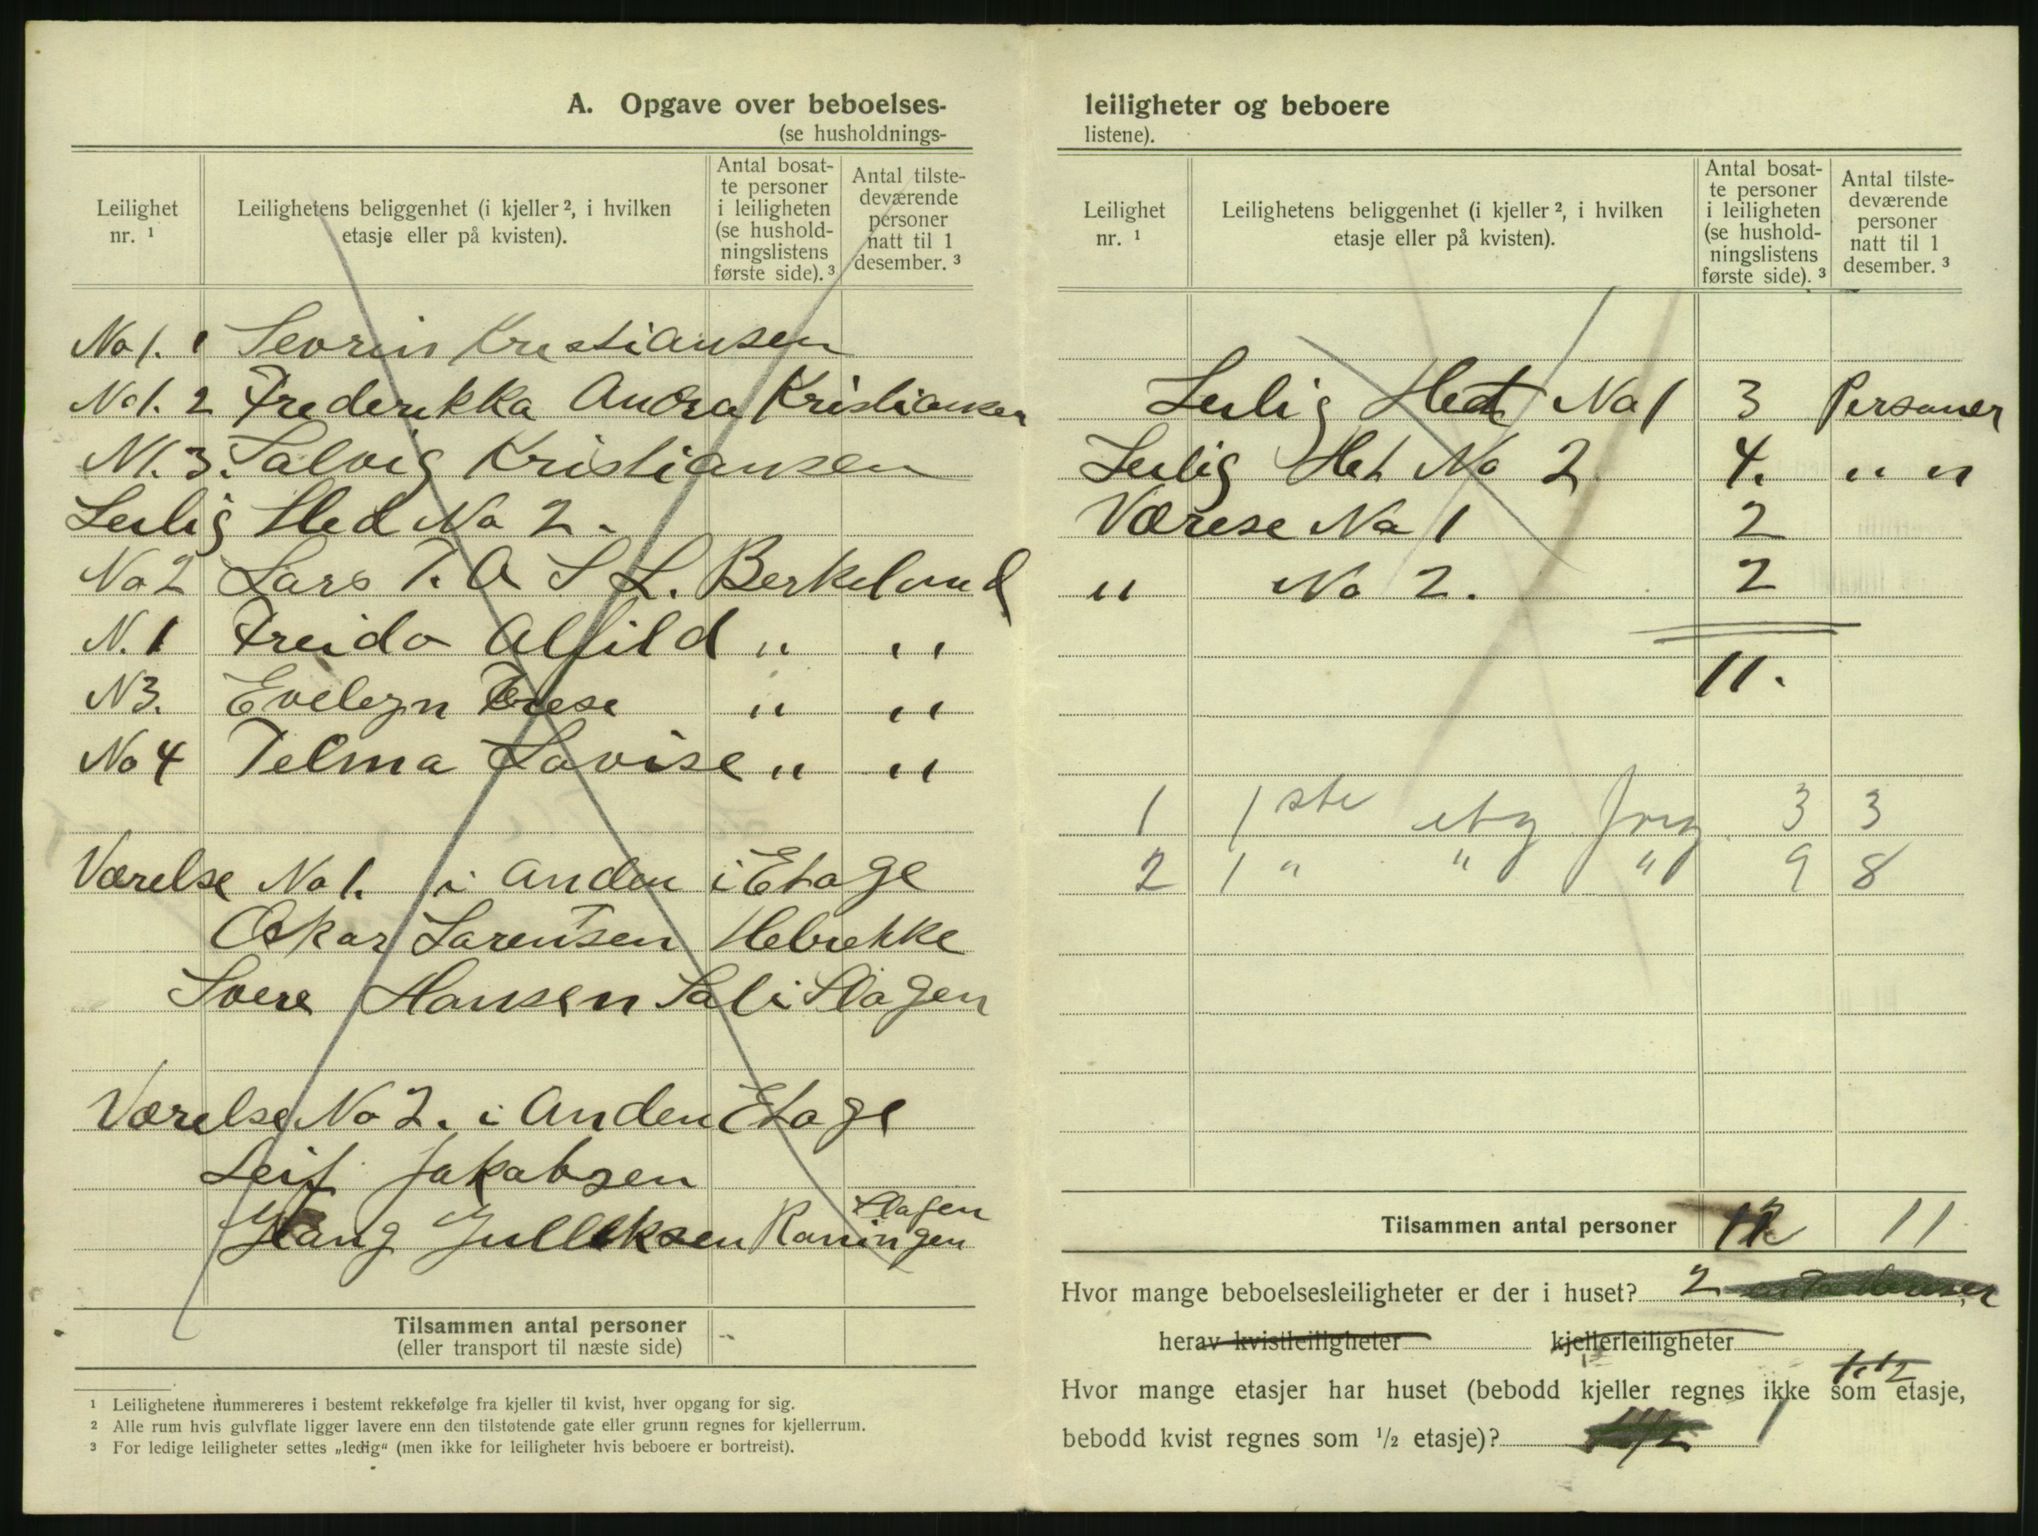 A. Opgave over beboelses-
(se husholdnings-
Leilighet nr. ¹
Leilighetens beliggenhet (i kjeller ², i hvilken etasje eller på kvisten).
Antal bosatte personer i leiligheten (se husholdningslistens første side). ³
Antal tilstedeværende personer natt til 1 desember. ³
No 1. 1 Sevrin Kristiansen
No 1. 2 Frederikka Andrea Kristiansen
N1. 3. Salvig Kristiansen
Leilig Hed No 2.
No 2 Lars T. A S L. Berkelund
N. 1 Freida Alfild " "
N 3. Evelyn Terese " "
No 4 Telma Lovise " "
Værelse No 1. i Anden i Etage
Oskar Larentsen Hebrekke
Svere Hansen Sal i Slagen
Værelse No 2. i Anden Etage
Leif Jakabsen
Slagen
Hang Julleksen Ramingen
Tilsammen antal personer
(eller transport til næste side)
¹ Leilighetene nummereres i bestemt rekkefølge fra kjeller til kvist, hver opgang for sig.
² Alle rum hvis gulvflate ligger lavere enn den tilstøtende gate eller grunn regnes for kjellerrum.
³ For ledige leiligheter settes „ledig“ (men ikke for leiligheter hvis beboere er bortreist).
leiligheter og beboere
listene).
Leilighet nr. ¹
Leilighetens beliggenhet (i kjeller ², i hvilken etasje eller på kvisten).
Antal bosatte personer i leiligheten (se husholdningslistens første side). ³
Antal tilstedeværende personer natt til 1 desember. ³
Leilig Hedt No 1 3 Personer
Leilig Het No 2 4. " "
Værese No 1 2
" No 2. 2
11.
1 1 ste etg 3 3
2 1 " " " 9 8
Tilsammen antal personer 12 11
Hvor mange beboelsesleiligheter er der i huset? 2
herav kvistleiligheter kjellerleiligheter
1 1/2
Hvor mange etasjer har huset (bebodd kjeller regnes ikke som etasje,
bebodd kvist regnes som ½ etasje)?